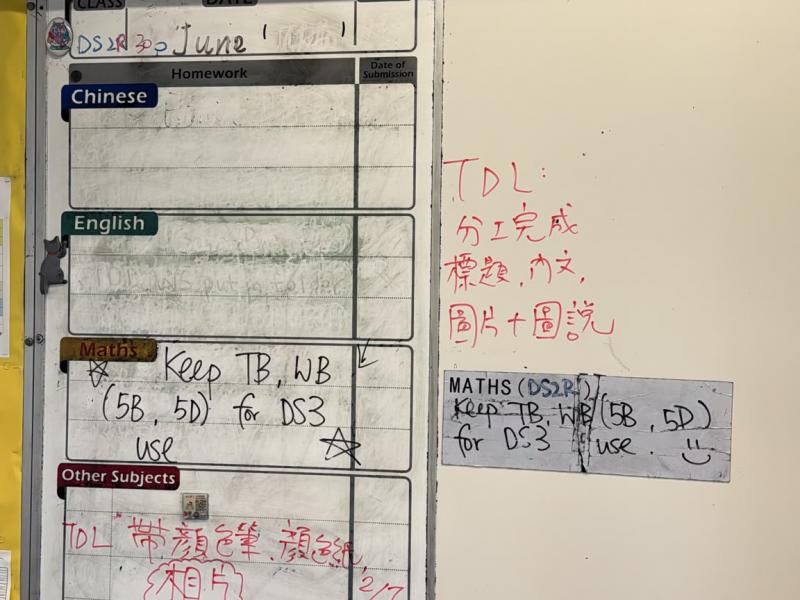 CLASS DATE
DS2R 30 June ( )
Homework Date of Submission
Chinese
English
Maths
Keep TB, WB
(5B, 5D) for DS3
use
Other Subjects
TDL 帶顏色筆、顏色紙,
相片 2/7
TDL:
分工完成
標題,內文,
圖片+圖說
MATHS (DS2R)
Keep TB, WB (5B, 5D)
for DS3 use.